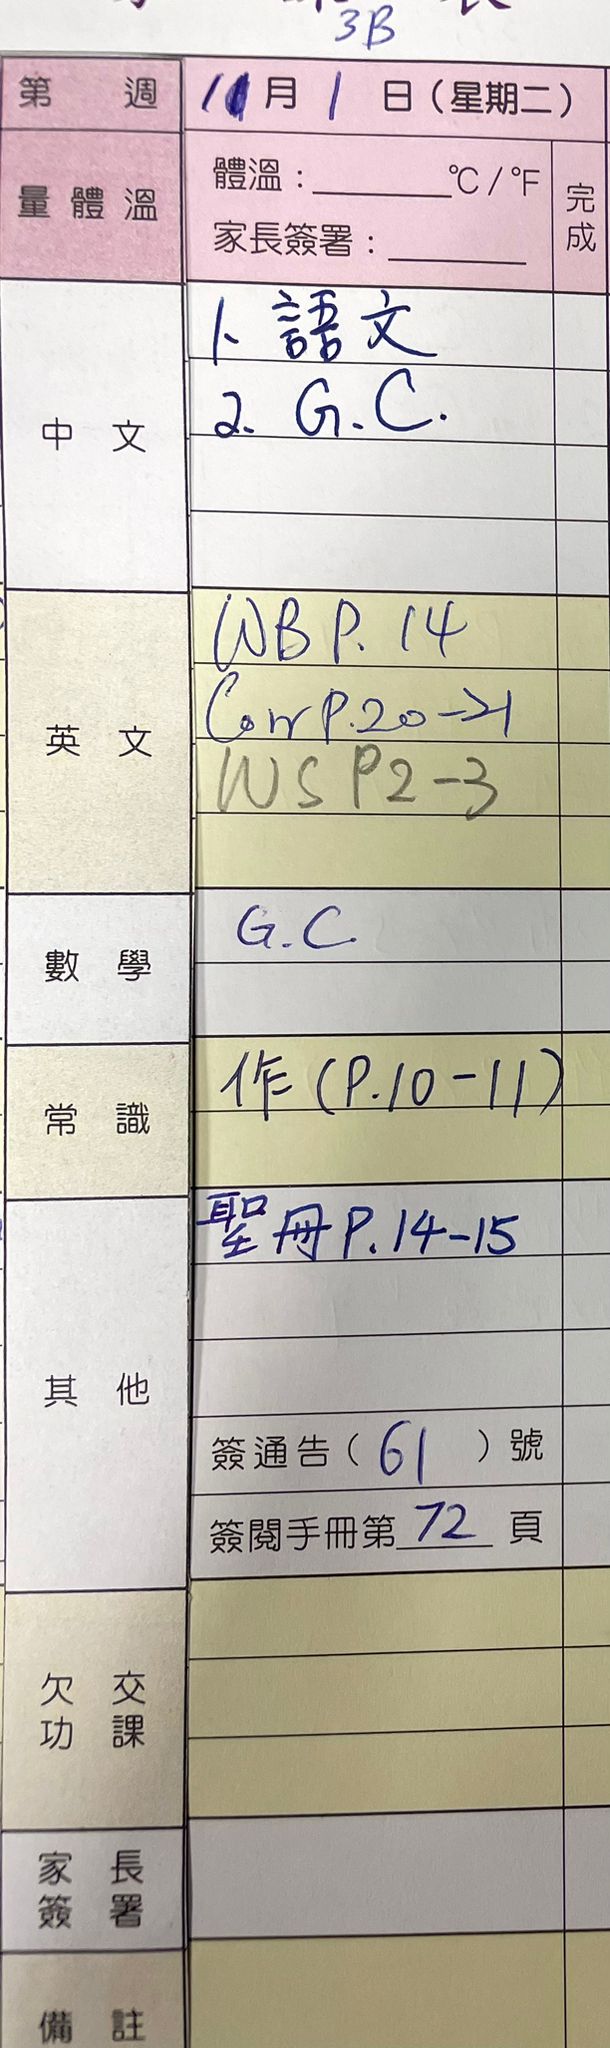 3B
第 週 11月 1 日（星期二）
量體溫 體溫：________°C / °F 完成
家長簽署：________
中文 1. 語文
2. G.C.
英文 WB P. 14
Corr P.20→21
WS P2-3
數學 G.C
常識 作 (P.10-11)
其他 聖冊 P.14-15
簽通告（ 61 ）號
簽閱手冊第 72 頁
欠交功課
家長簽署
備註